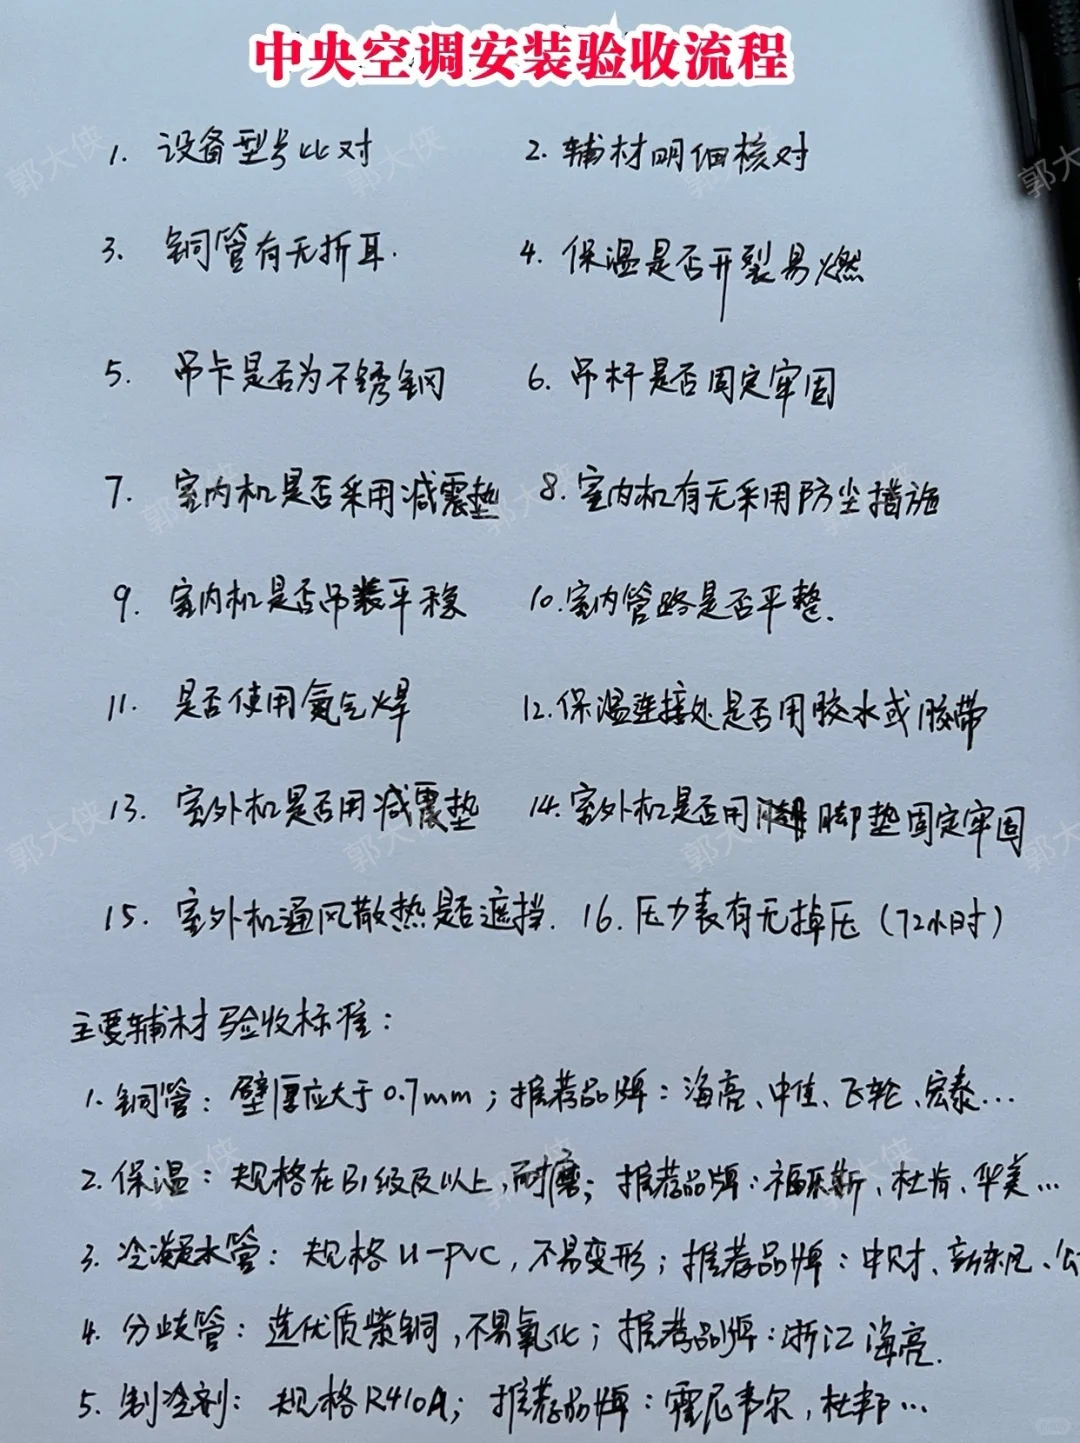 中央空调安装验收流程
1. 设备型号比对 2. 辅材明细核对
3. 铜管有无折耳. 4. 保温是否开裂易燃
5. 吊卡是否为不锈钢 6. 吊杆是否固定牢固
7. 室内机是否采用减震垫 8. 室内机有无采用防尘措施
9. 室内机是否吊装平稳 10. 室内管路是否平整.
11. 是否使用氮气焊 12. 保温连接处是否用胶水或胶带
13. 室外机是否用减震垫 14. 室外机是否用脚垫固定牢固
15. 室外机通风散热是否遮挡. 16. 压力表有无掉压（72小时）
主要辅材验收标准：
1. 铜管：壁厚应大于0.7mm；推荐品牌：海亮、中佳、飞轮、宏泰...
2. 保温：规格在B1级及以上，耐磨；推荐品牌：福乐斯、杜肯、华美...
3. 冷凝水管：规格U-PVC，不易变形；推荐品牌：中财、
4. 分歧管：选优质紫铜，不易氧化；推荐品牌：浙江海亮.
5. 制冷剂：规格R410A；推荐品牌：霍尼韦尔，杜邦...
郭大侠